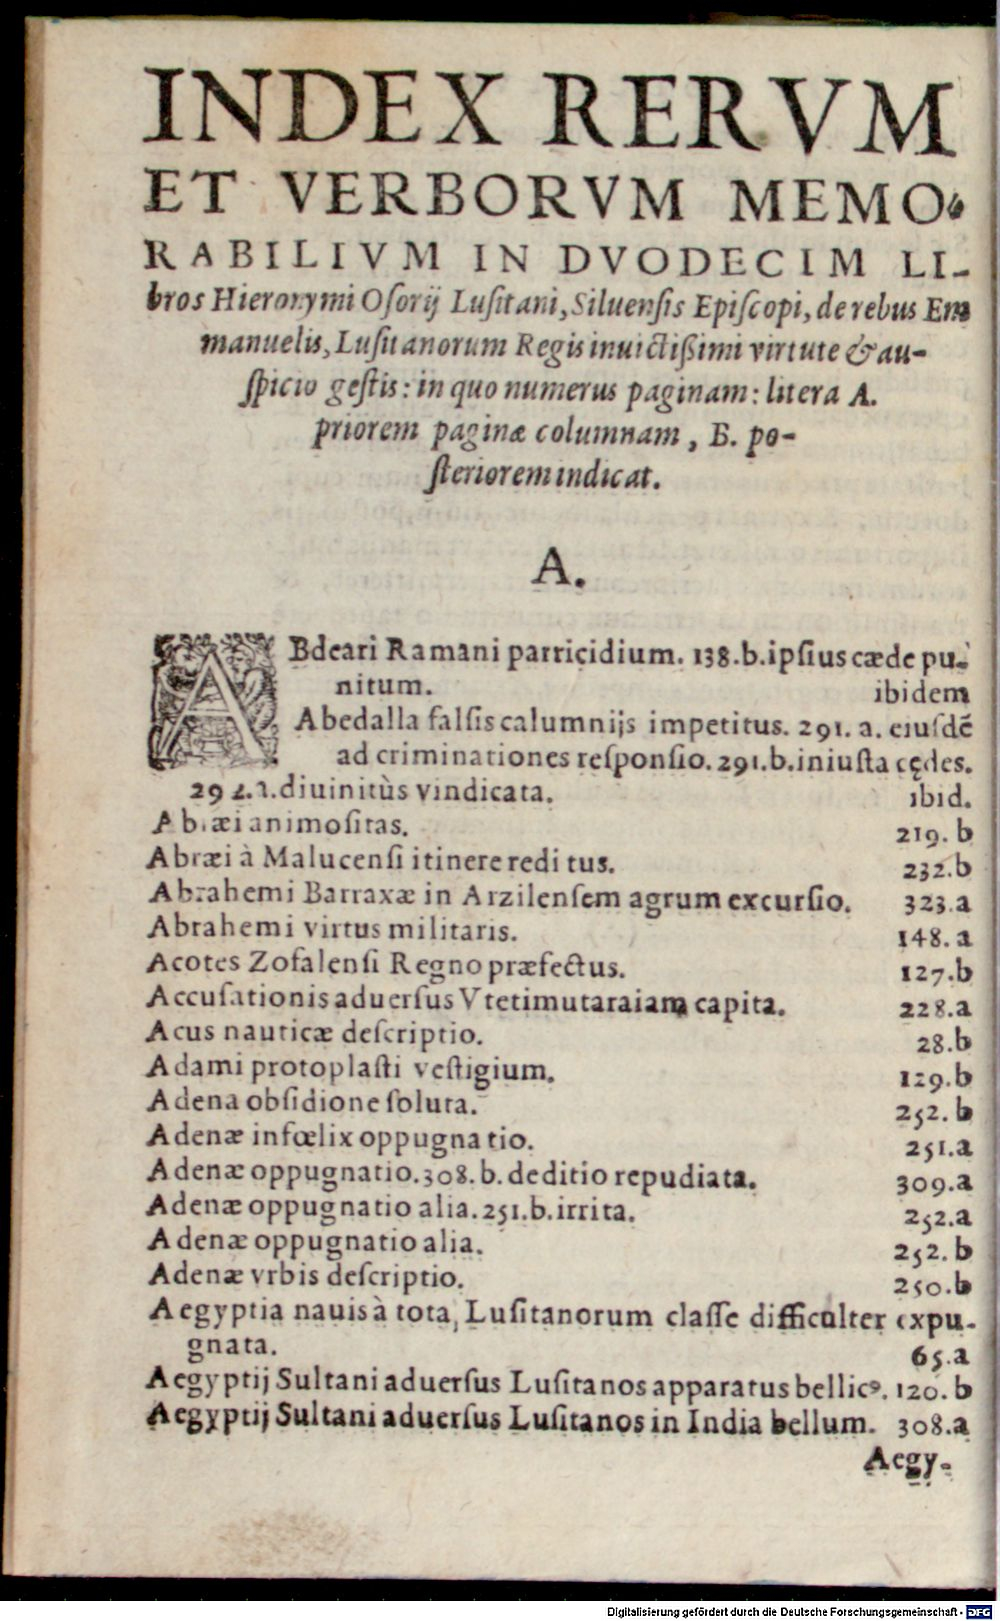 INDEX RERVM
ET VERBORVM MEMO-
RABILIVM IN DVODECIM LI-
bros Hieronymi Oſorij Luſitani, Siluenſis Epiſcopi, de rebus Em
manuelis, Luſitanorum Regis inuictißimi virtute & au-
ſpicio geſtis: in quo numerus paginam: litera A.
priorem paginæ columnam, B. po-
ſteriorem indicat.
A.
ABdeari Ramani parricidium. 138.b. ipſius cæde pu-
nitum. ibidem
Abedalla falſis calumnijs impetitus. 291. a. eiuſdē
ad criminationes reſponſio. 291.b. iniuſta cędes.
292.a. diuinitùs vindicata. ibid.
Abræi animoſitas. 219. b
Abræi à Malucenſi itinere reditus. 232.b
Abrahemi Barraxæ in Arzilenſem agrum excurſio. 323.a
Abrahemi virtus militaris. 148. a
Acotes Zofalenſi Regno præfectus. 127.b
Accuſationis aduerſus Vtetimutaraiam capita. 228.a
Acus nauticæ deſcriptio. 28.b
Adami protoplaſti veſtigium. 129.b
Adena obſidione ſoluta. 252. b
Adenæ infœlix oppugnatio. 251.a
Adenæ oppugnatio. 308. b. deditio repudiata. 309.a
Adenæ oppugnatio alia. 251.b. irrita. 252.a
Adenæ oppugnatio alia. 252. b
Adenæ vrbis deſcriptio. 250.b
Aegyptia nauis à tota, Luſitanorum claſſe difficulter expu-
gnata. 65.a
Aegyptij Sultani aduerſus Luſitanos apparatus bellicꝰ. 120. b
Aegyptij Sultani aduerſus Luſitanos in India bellum. 308.a
Aegy-
Digitalisierung gefördert durch die Deutsche Forschungsgemeinschaft - DFG